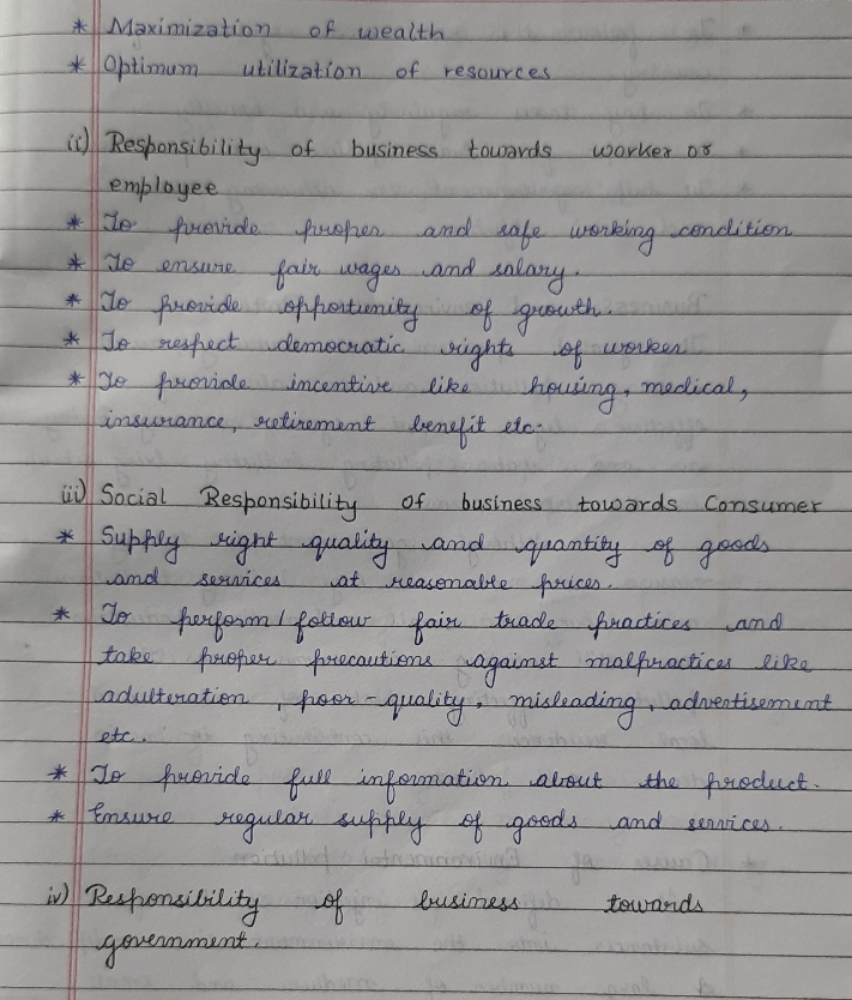 * Maximization of wealth
* Optimum utilization of resources
ii) Responsibility of business towards worker or
employee
* To provide proper and safe working condition
* To ensure fair wages and salary.
* To provide opportunity of growth.
* To respect democratic rights of worker
* To provide incentive like housing, medical,
insurance, retirement benefit etc.
iii) Social Responsibility of business towards Consumer
* Supply right quality and quantity of goods
and services at reasonable prices.
* To perform/follow fair trade practices and
take proper precautions against malpractices like
adulteration, poor-quality, misleading, advertisement
etc.
* To provide full information about the product.
* Ensure regular supply of goods and services.
iv) Responsibility of business towards
government.